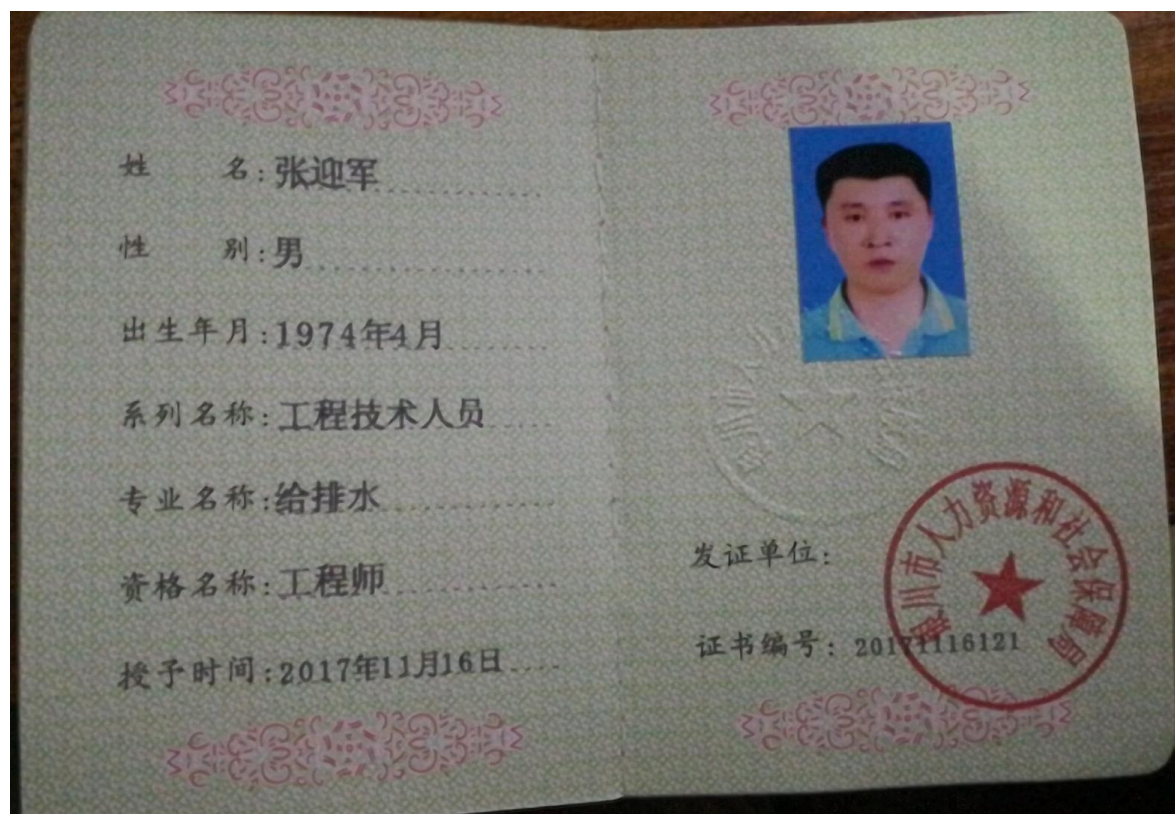 姓名:张迎军
性别:男
出生年月:1974年4月
系列名称:工程技术人员
专业名称:给排水
资格名称:工程师
授予时间:2017年11月16日
发证单位:
银川市人力资源和社会保障局
证书编号:20171116121